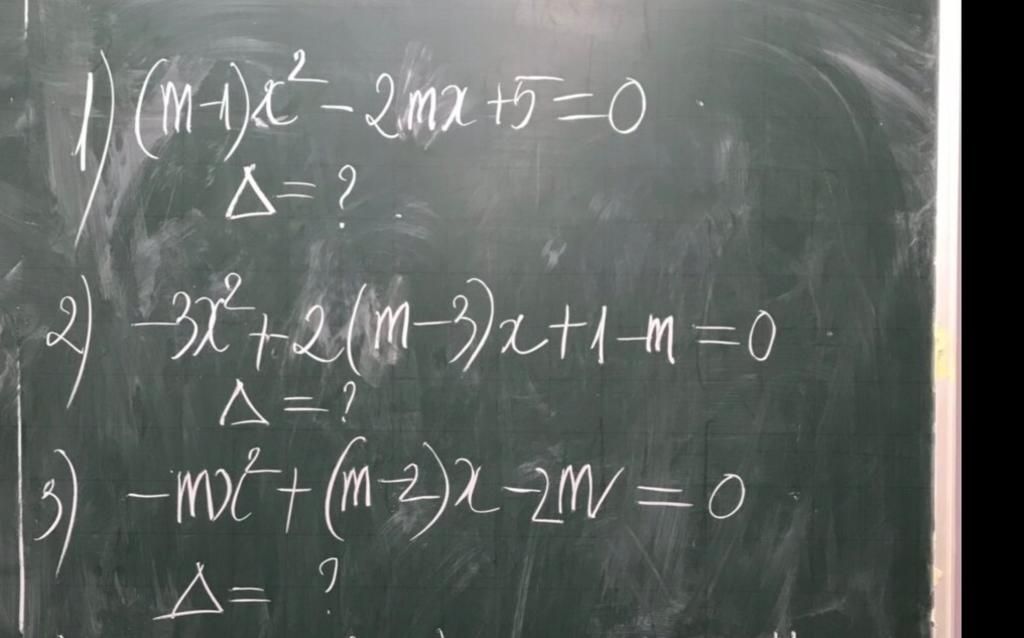 1) (m-1)x² - 2mx + 5 = 0
Δ = ?
2) -3x² + 2(m-3)x + 1-m = 0
Δ = ?
3) -mx² + (m-2)x - 2m = 0
Δ = ?